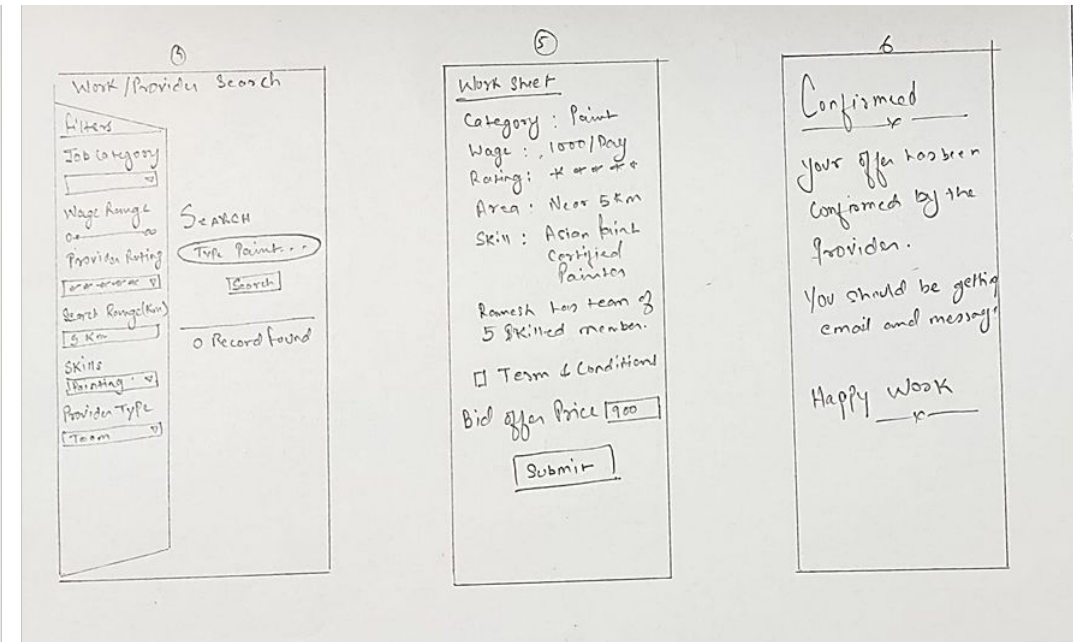 Work/Provider Search
Filters
Job Category
Wage Range
Provider Rating
Search Range(Km)
5 Km
Skills
Painting
Provider Type
Team
SEARCH
Type Paint...
Search
0 Record found
5
Work Sheet
Category : Paint
Wage : 1000/Day
Rating : * * * * *
Area : Near 5 Km
Skill : Asian Paint
Certified
Painter
Ramesh has team of
5 Skilled member.
Term & Conditions
Bid offer Price 900
Submit
6
Confirmed
Your offer has been
Confirmed by the
Provider.
You should be getting
email and message
Happy Work